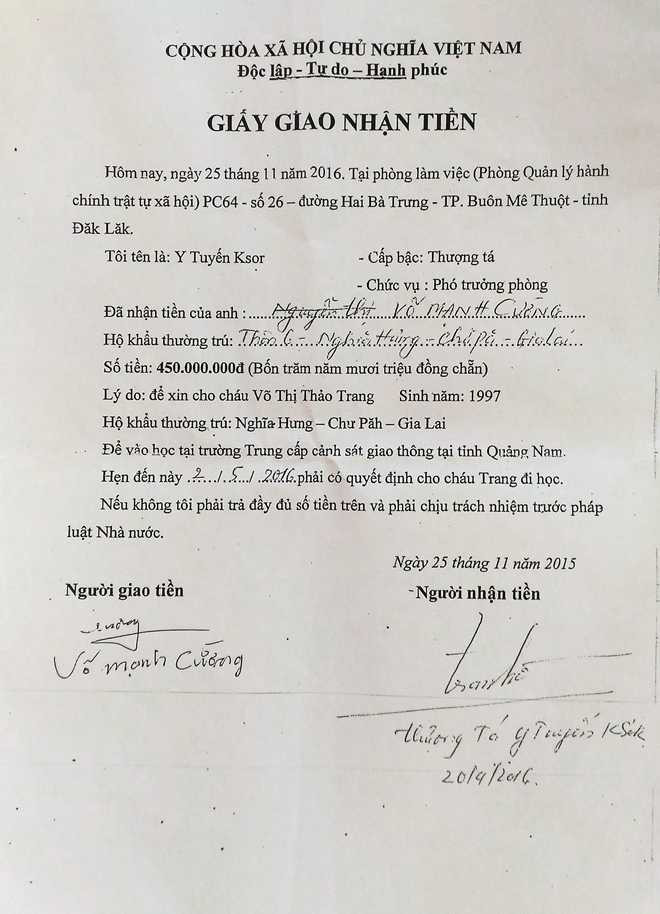 CỘNG HÒA XÃ HỘI CHỦ NGHĨA VIỆT NAM
Độc lập - Tự do – Hạnh phúc
GIẤY GIAO NHẬN TIỀN
Hôm nay, ngày 25 tháng 11 năm 2016. Tại phòng làm việc (Phòng Quản lý hành
chính trật tự xã hội) PC64 - số 26 – đường Hai Bà Trưng - TP. Buôn Mê Thuột - tỉnh
Đăk Lăk.
Tôi tên là: Y Tuyến Ksor - Cấp bậc: Thượng tá
- Chức vụ : Phó trưởng phòng
Đã nhận tiền của anh : Nguyễn thị VÕ MẠNH CƯỜNG
Hộ khẩu thường trú: Thôn 6 - Nghĩa Hưng - Chư Pả - Gia Lai
Số tiền: 450.000.000đ (Bốn trăm năm mươi triệu đồng chẵn)
Lý do: để xin cho cháu Võ Thị Thảo Trang Sinh năm: 1997
Hộ khẩu thường trú: Nghĩa Hưng – Chư Păh – Gia Lai
Để vào học tại trường Trung cấp cảnh sát giao thông tại tỉnh Quảng Nam.
Hẹn đến này 2/5/2016 phải có quyết định cho cháu Trang đi học.
Nếu không tôi phải trả đầy đủ số tiền trên và phải chịu trách nhiệm trước pháp
luật Nhà nước.
Ngày 25 tháng 11 năm 2015
Người giao tiền - Người nhận tiền
Võ Mạnh Cường
thượng Tá Y Tuyến KSok
20/4/2016.